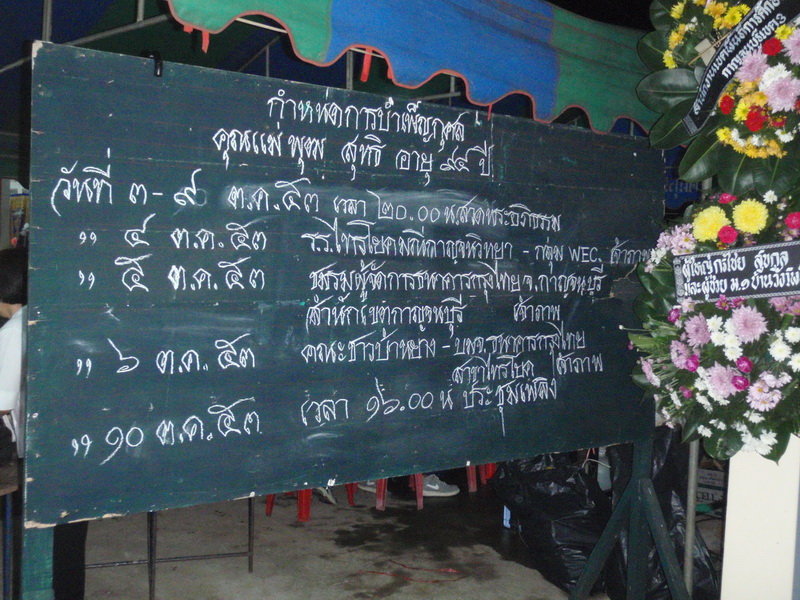 กำหนดการบำเพ็ญกุศล
คุณแม่ พุฒ สุทธิ อายุ ๙๔ ปี
วันที่ ๓-๙ ต.ค.๕๓ เวลา ๒๐.๐๐ น.สวดพระอภิธรรม
,, ๔ ต.ค.๕๓ ร.ร.ไทรโยคมณีกาญจน์วิทยา - กลุ่ม WEC. เจ้าภาพ
,, ๕ ต.ค.๕๓ ชมรมผู้จัดการธนาคารกรุงไทย จ.กาญจนบุรี
(สำนักเขตกาญจนบุรี เจ้าภาพ
,, ๖ ต.ค.๕๓ คณะชาวบ้านยาง - บมจ.ธนาคารกรุงไทย
สาขาไทรโยค เจ้าภาพ
,, ๑๐ ต.ค.๕๓ เวลา ๑๖.๐๐ น ประชุมเพลิง
กาญจนบุรีเขต 3